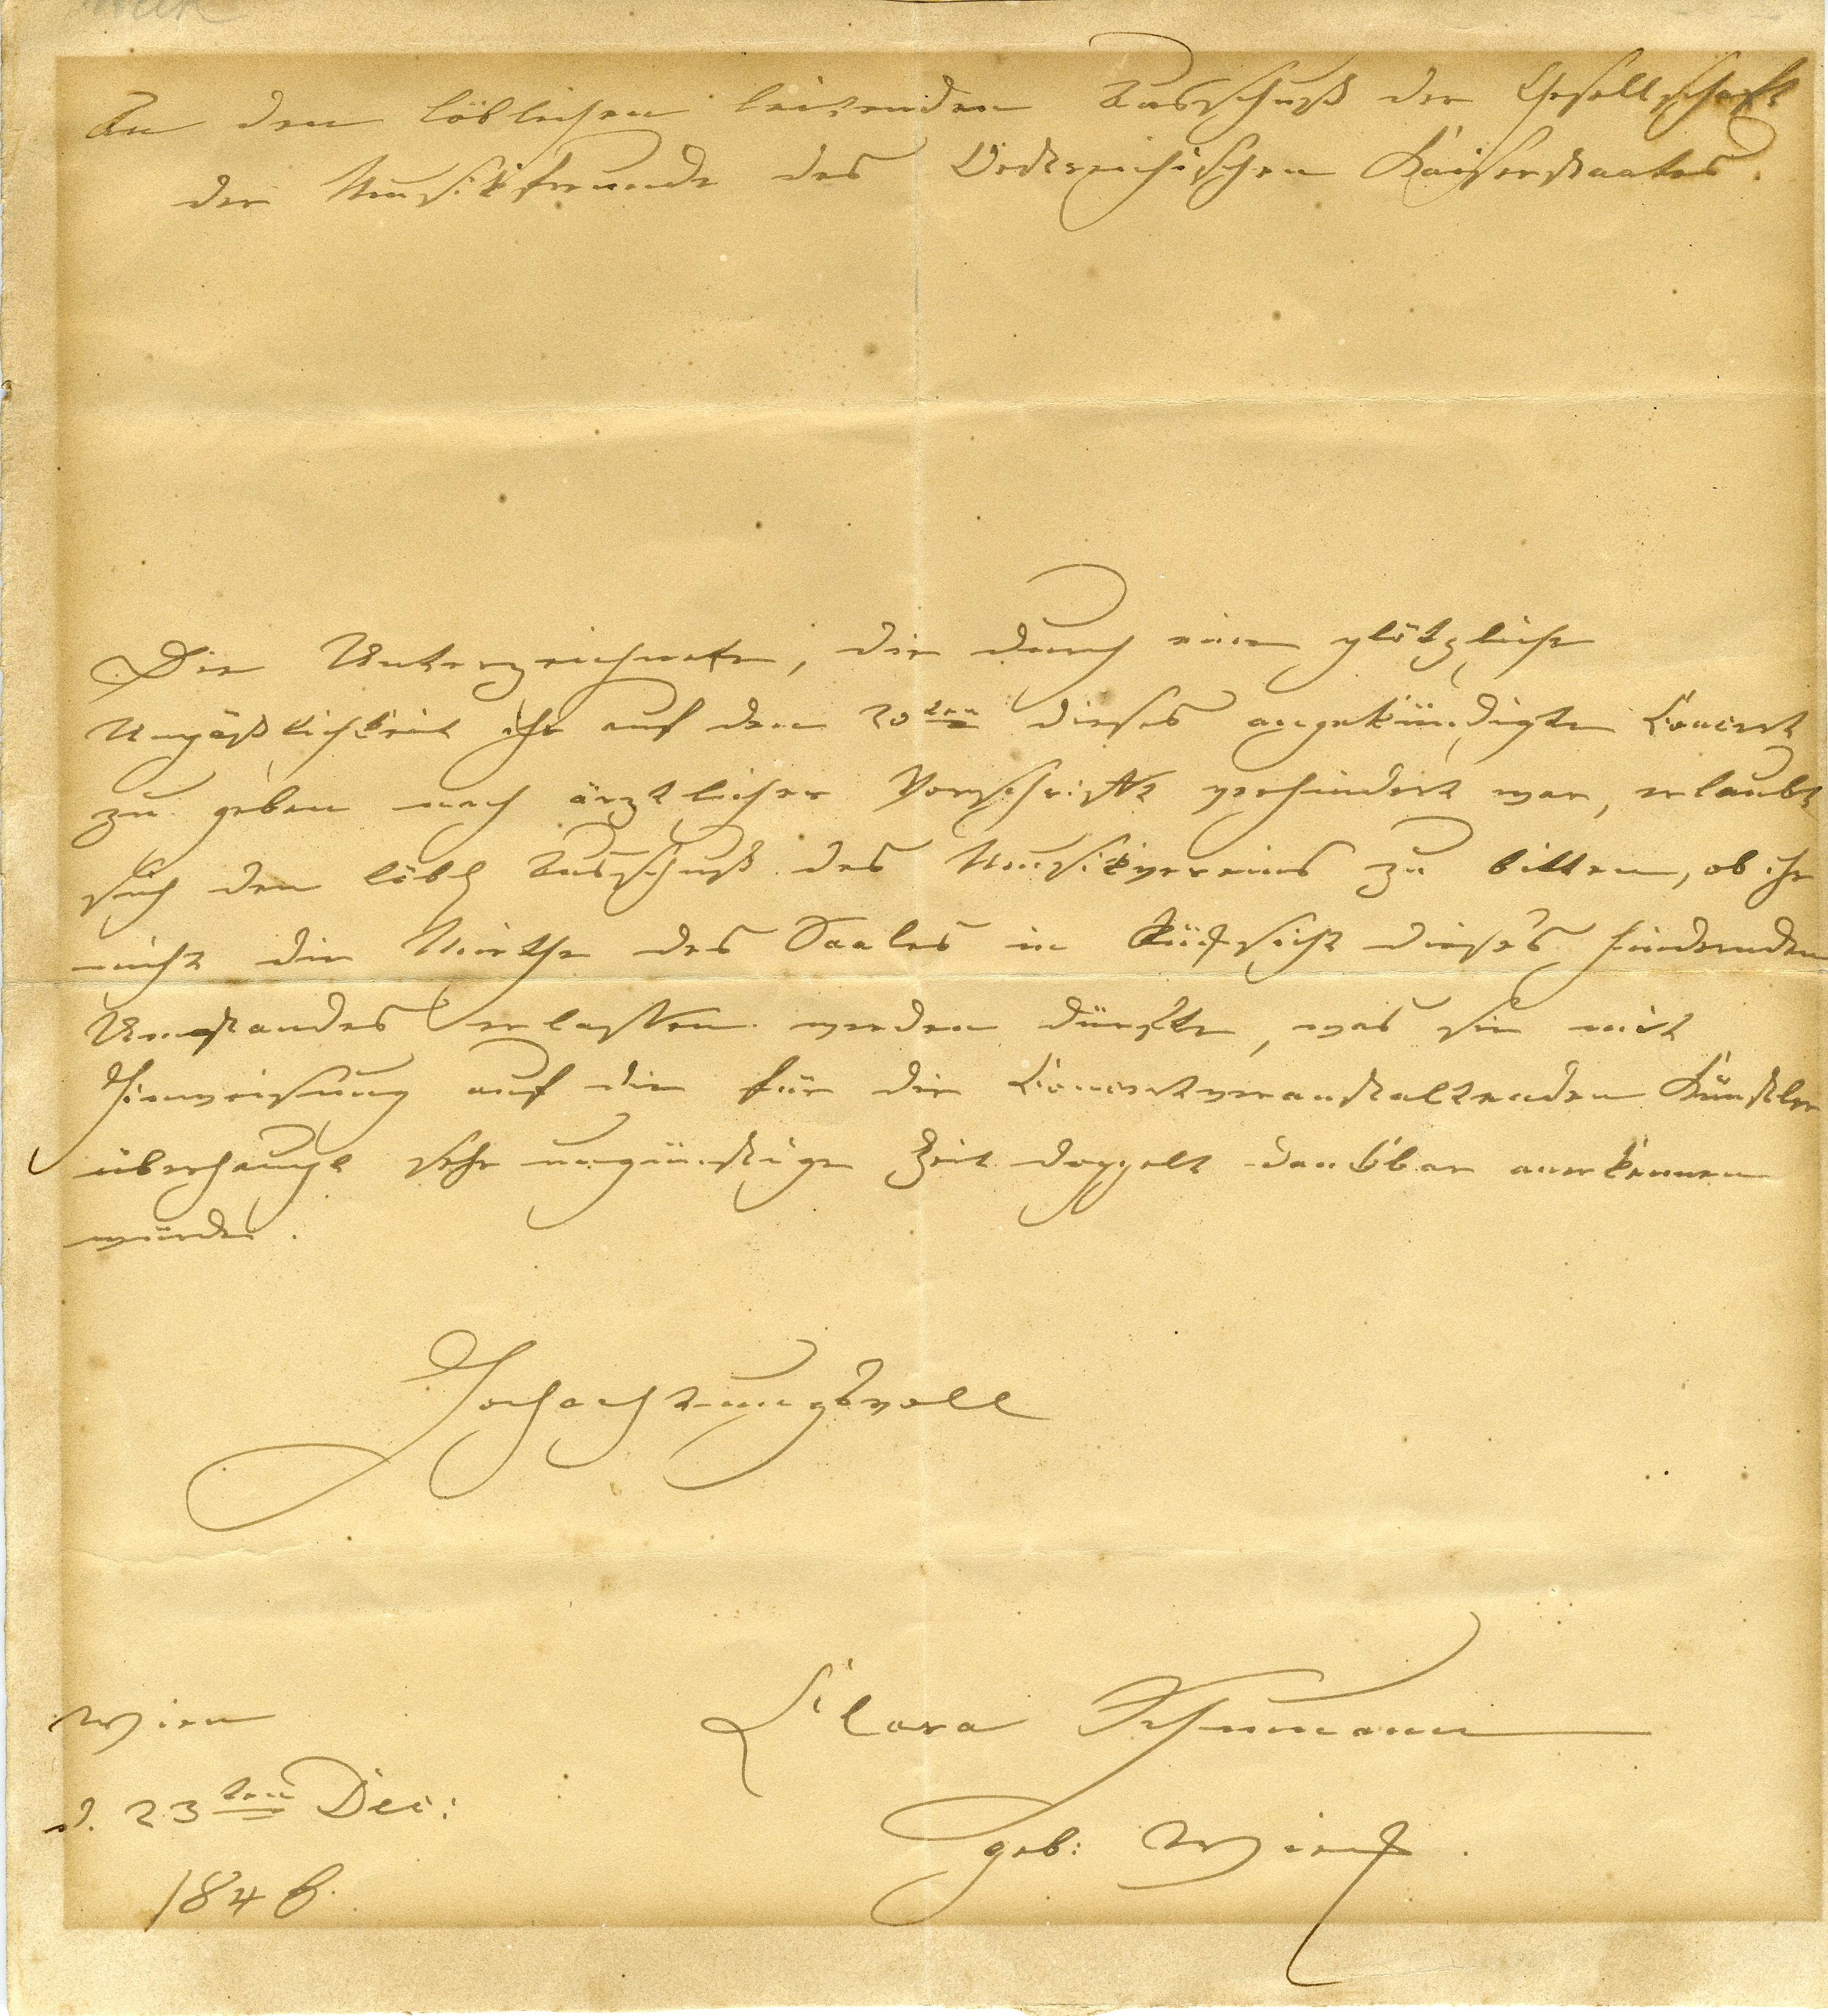 An den löblichen leitenden Ausschuß der Gesellschaft
der Musikfreunde des Oestreichischen Kaiserstaates.
Die Unterzeichnete, die durch eine plötzliche
Unpäßlichkeit ihr auf den 20ten dieses angekündigte Concert
zu geben nach ärztlicher Vorschrift verhindert war, erlaubt
sich den löbl Ausschuß des Musikvereins zu bitten, ob ihr
nicht die Miethe des Saales in Rücksicht dieses hindernden
Umstandes erlassen werden dürfte, was sie mit
Hinweisung auf die für die Concertveranstaltenden Künstler
überhaupt sehr ungünstige Zeit doppelt dankbar anerkennen
würde.
Hochachtungsvoll
Clara Schumann
geb: Wieck.
Wien
d. 23ten Dec:
1846.